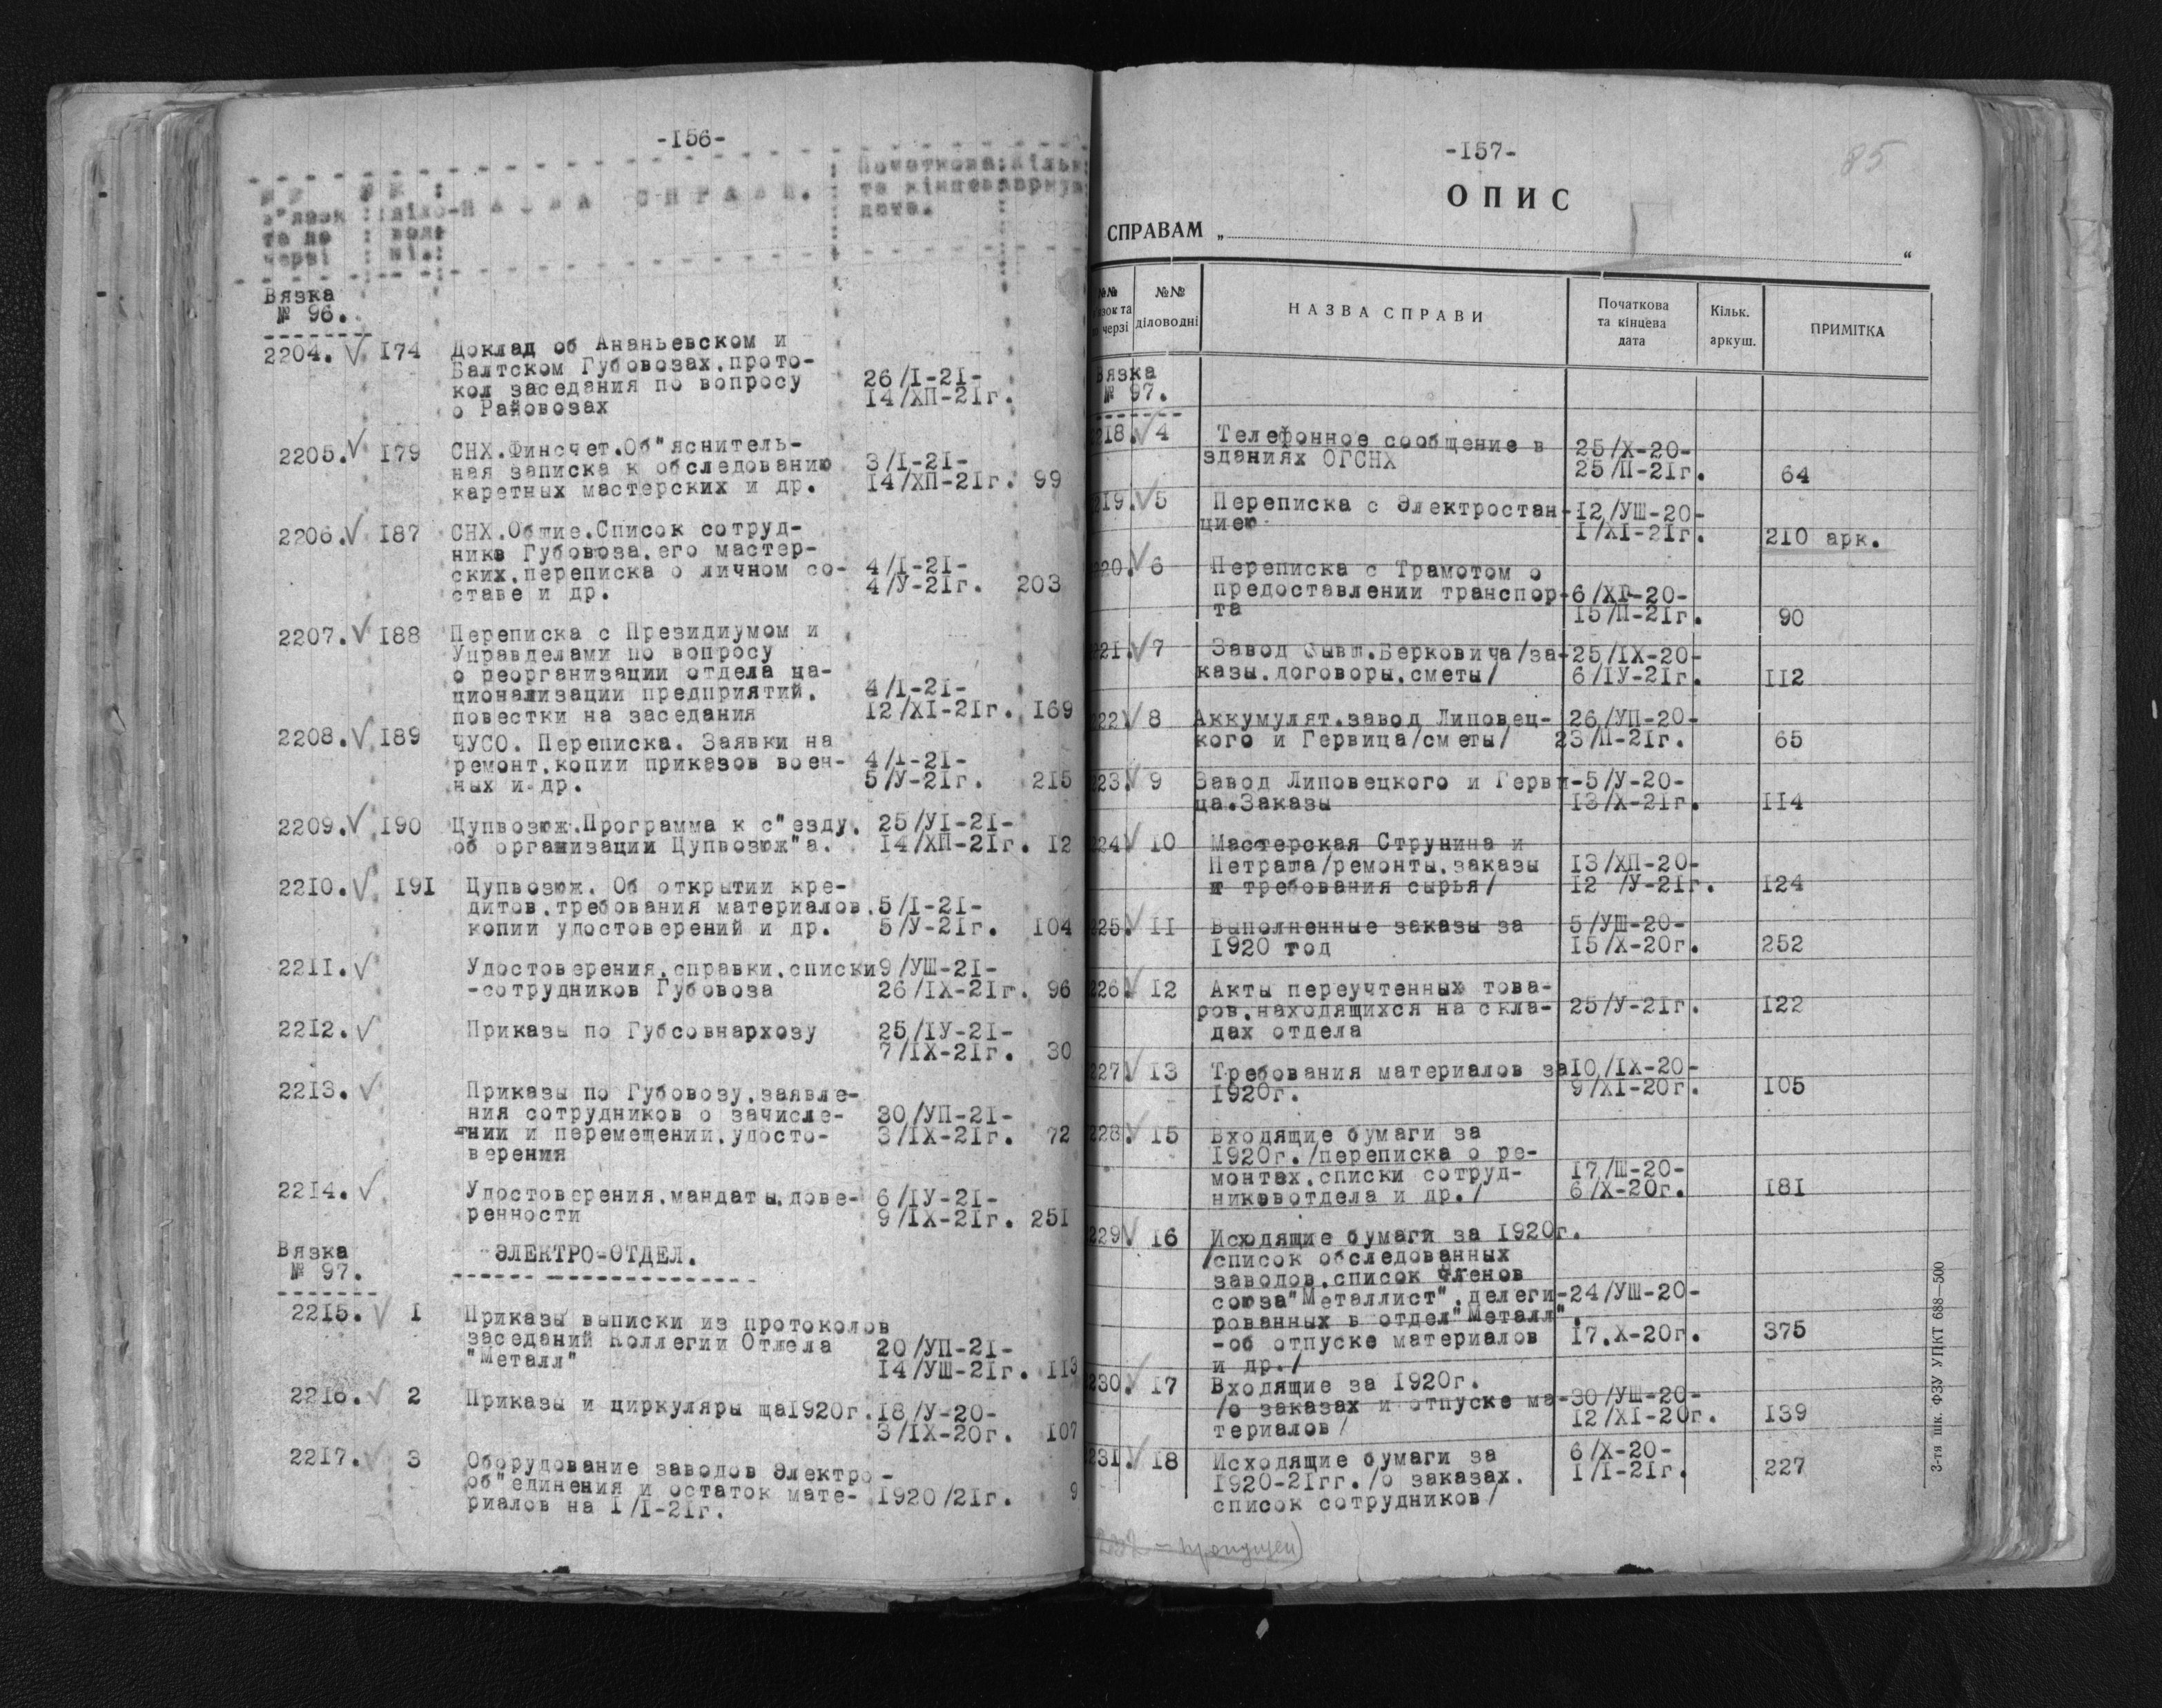 -156-
№ № № № Початкова: Кільк
в"язок діло- Н А З В А С П Р А В И. та кінцева аркуш
та по вод- дата.
черзі ні.
Вязка
№ 96.
2204. √ 174 Доклад об Ананьевском и
Балтском Губовозах.прото-
кол заседания по вопросу 26/I-21-
о Райовозах 14/ХП-21г.
2205.√ 179 СНХ.Финсчет.Об"яснитель-
ная записка к обследованию 3/I-21-
каретных мастерских и др. 14/ХП-21г. 99
2206.√ 187 СНХ.Общие.Список сотруд-
никв Губовоза.его мастер-
ских.переписка о личном со- 4/I-21-
ставе и др. 4/У-21г. 203
2207.√ 188 Переписка с Президиумом и
Управделами по вопросу
о реорганизации отдела на-
ционализации предприятий. 4/I-21-
повестки на заседания 12/XI-21г. 169
2208.√ 189 ЧУСО. Переписка. Заявки на
ремонт.копии приказов воен- 4/I-21-
ных и др. 5/У-21г. 215
2209.√ 190 Цупвозюж.Программа к с"езду. 25/УI-21-
об организации Цупвозюж"а. 14/ХП-21г. 12
2210.√ 191 Цупвозюж. Об открытии кре-
дитов.требования материалов.5/I-21-
копии удостоверений и др. 5/У-21г. 104
2211.√ Удостоверения.справки.списки9/УШ-21-
-сотрудников Губовоза 26/IX-21г. 96
2212.√ Приказы по Губсовнархозу 25/IУ-21-
7/IX-21г. 30
2213.√ Приказы по Губовозу.заявле-
ния сотрудников о зачисле- 30/УП-21-
нии и перемещении.удосто- 3/IX-21г. 72
верения
2214.√ Удостоверения.мандаты.дове- 6/IУ-21-
ренности 9/IX-21г. 251
Вязка ЭЛЕКТРО-ОТДЕЛ.
№ 97.
2215.√ 1 Приказы выписки из протоколов
заседаний Коллегии Отжела 20/УП-21-
"Металл" 14/УШ-21г. 113
2216.√ 2 Приказы и циркуляры ща1920г.18/У-20-
3/IX-20г. 107
2217.√ 3 Оборудование заводов Электро-
об"единения и остаток мате- 1920/21г. 9
риалов на 1/I-21г.
-157- 85
ОПИС
СПРАВАМ „ “
№№ №№ НАЗВА СПРАВИ Початкова Кільк. ПРИМІТКА
язок та діловодні та кінцева аркуш.
черзі дата
Вязка
№ 97.
218.√ 4 Телефонное сообщение в 25/X-20-
зданиях ОГСНХ 25/П-21г. 64
219.√ 5 Переписка с Электростан-12/УШ-20-
циею 1/XI-21г. 210 арк.
220.√ 6 Переписка с Трамотом о
предоставлении транспор-6/XI-20-
та 15/П-21г. 90
221.√ 7 Завод бывш.Берковича/за-25/IX-20-
казы.договоры.сметы/ 6/IУ-21г. 112
222√ 8 Аккумулят.завод Липовец- 26/УП-20-
кого и Гервица/сметы/ 23/П-21г. 65
223.√ 9 Завод Липовецкого и Герви-5/У-20-
ца.Заказы 13/X-21г. 114
224√ 10 Мастерская Струнина и
Петраша/ремонты.заказы 13/ХП-20-
и требования сырья/ 12 /У-21г. 124
225.√ 11 Выполненные заказы за 5/УШ-20-
1920 тод 15/X-20г. 252
226√ 12 Акты переучтенных това-
ров.находящихся на скла- 25/У-21г. 122
дах отдела
227√ 13 Требования материалов за10/IX-20-
1920г. 9/XI-20г. 105
228.√ 15 Входящие бумаги за
1920г./переписка о ре-
монтах.списки сотруд- 17/Ш-20-
никввотдела и др./ 6/X-20г. 181
229√ 16 Исходящие бумаги за 1920г.
/список обследованных
заводов.список членов
союза"Металлист".делеги-24/УШ-20-
рованных в отдел"Металл".
-об отпуске материалов 17.X-20г. 375
и др./
230.√ 17 Входящие за 1920г.
/о заказах и отпуске ма-30/УШ-20-
териалов/ 12/XI-20г. 139
231.√ 18 Исходящие бумаги за 6/X-20-
1920-21гг./о заказах. 1/I-21г. 227
список сотрудников/
3-тя шк. ФЗУ УПКТ 688—500